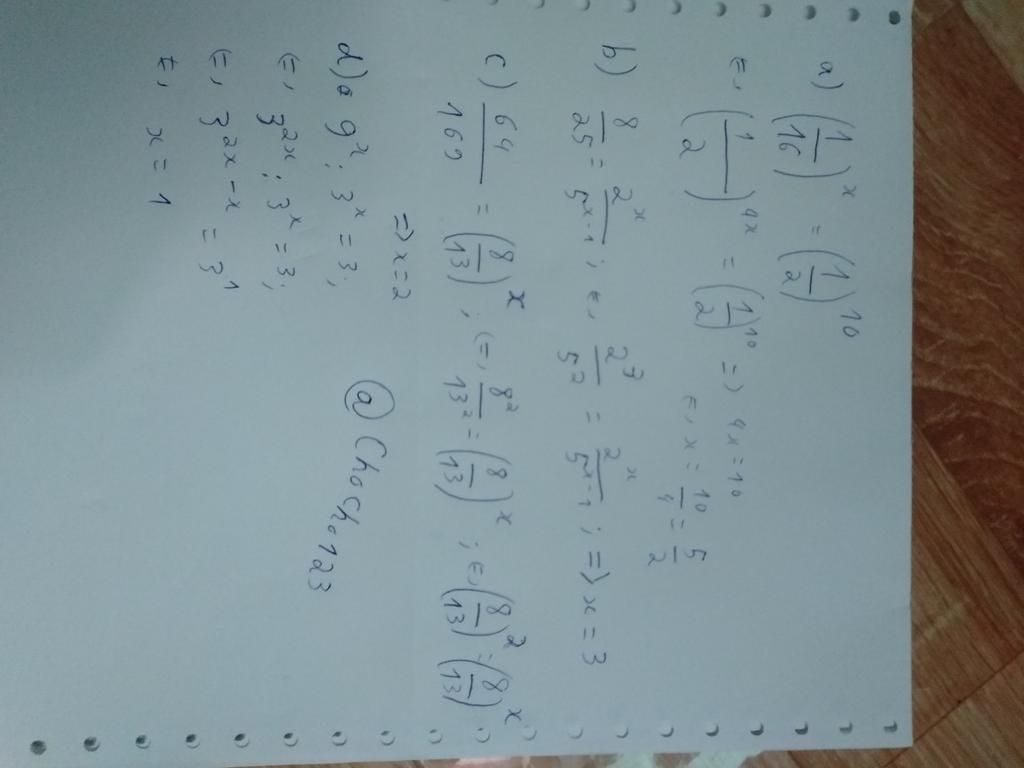 a) (1/16)^x = (1/2)^10
(=, (1/2)^4x = (1/2)^10 =) 4x = 10
(=, x = 10/4 = 5/2
b) 8/25 = 2^x/5^x-1 ; (=, 2^3/5^2 = 2^x/5^x-1 ; =) x = 3
c) 64/169 = (8/13)^x ; (=, 8^2/13^2 = (8/13)^x ; (=, (8/13)^2 = (8/13)^x
=) x = 2
d) 9^x : 3^x = 3;
(=, 3^2x : 3^x = 3;
(=, 3^2x-x = 3^1
(=, x = 1
@ Chocho123